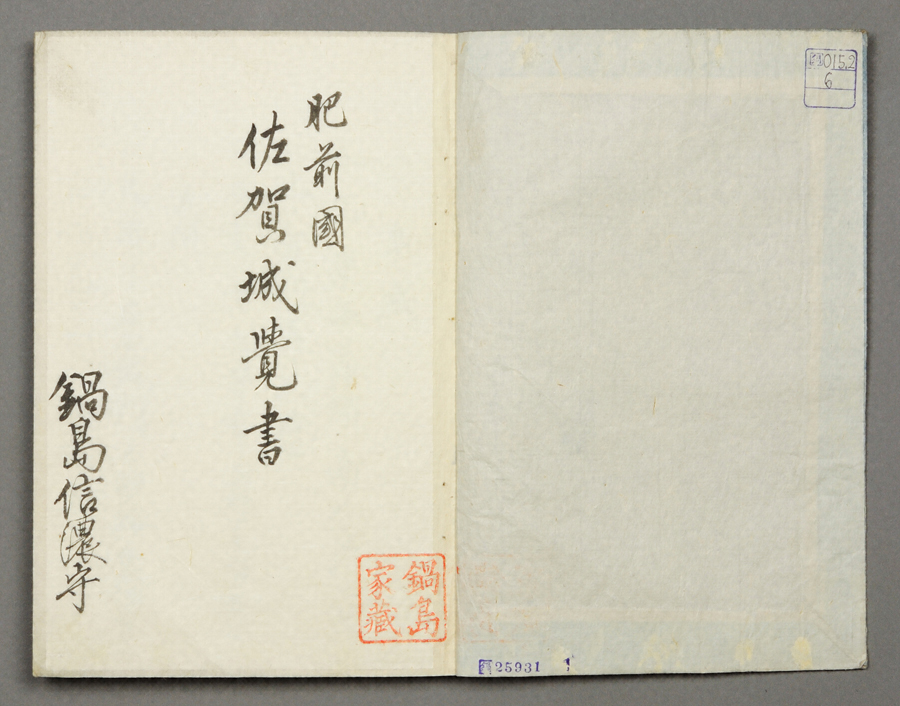 015.2
6
肥前國
佐賀城覺書
鍋島信濃守
鍋島
家藏
25931